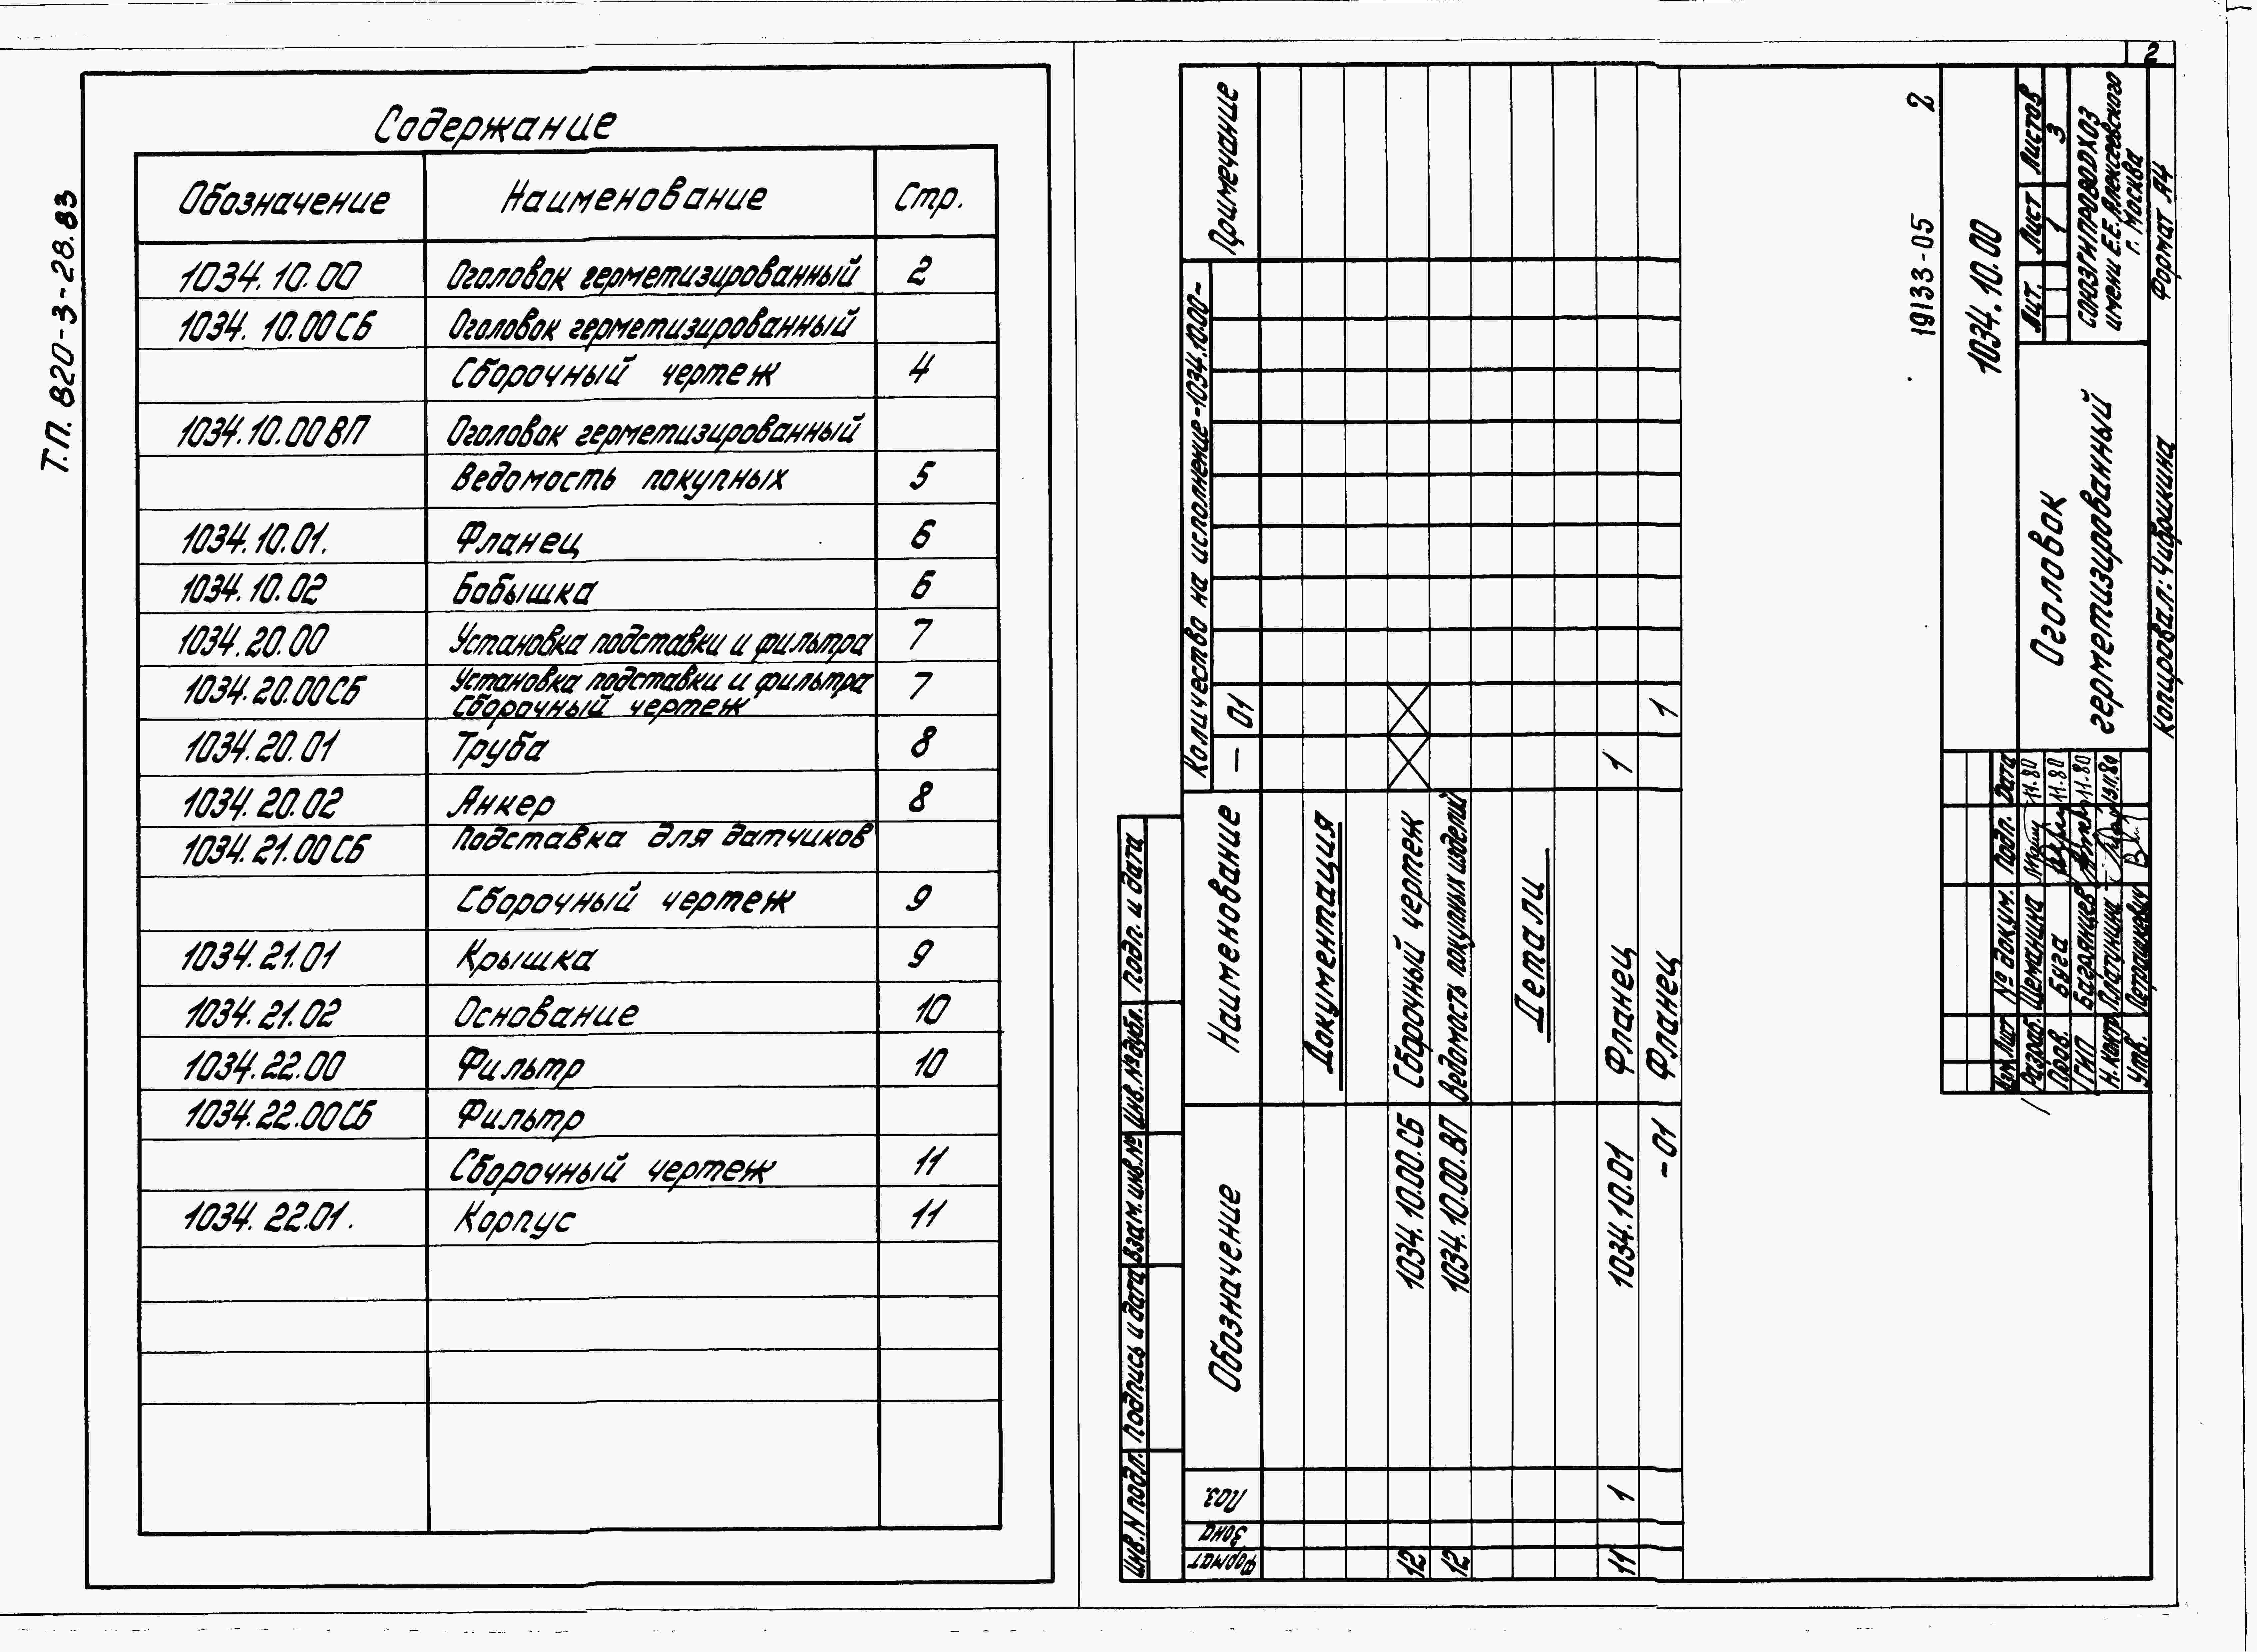 2
Т.П. 820-3-28.83
Содержание
Обозначение Наименование Стр.
1034.10.00 Оголовок герметизированный 2
1034. 10.00 СБ Оголовок герметизированный
Сборочный чертеж 4
1034.10.00 ВП Оголовок герметизированный
Ведомость покупных 5
1034.10.01. Фланец 6
1034.10.02 Бобышка 6
1034.20.00 Установка подставки и фильтра 7
1034.20.00 СБ Установка подставки и фильтра 7
Сборочный чертеж
1034.20.01 Труба 8
1034.20.02 Анкер 8
1034.21.00 СБ Подставка для датчиков
Сборочный чертеж 9
1034.21.01 Крышка 9
1034.21.02 Основание 10
1034.22.00 Фильтр 10
1034.22.00 СБ Фильтр
Сборочный чертеж 11
1034.22.01. Корпус 11
Инв.N подл. Подпись и дата Взам.инв.№ Инв.№дубл. Подп. и дата
Формат Зона Поз. Обозначение Наименование Количество на исполнение-1034.10.00- Примечание
— 01
Документация
12 1034.10.00.СБ Сборочный чертеж
12 1034.10.00.ВП Ведомость покупных изделий
Детали
11 1 1034.10.01 Фланец 1
-01 Фланец 1
19133-05 2
1034.10.00
Изм Лист № докум. Подп. Дата
Разраб. Щеманина 11.80
Пров. Буга 11.80
ГИП Багдянцев 11.80
Н. контр Платунина 13.11.80
Утв. Петрашкевич
Оголовок
герметизированный
Лит. Лист Листов
1 3
СОЮЗГИПРОВОДХОЗ
имени Е.Е. Алексеевского
г. Москва
Копировал: Чибошкина Формат А4